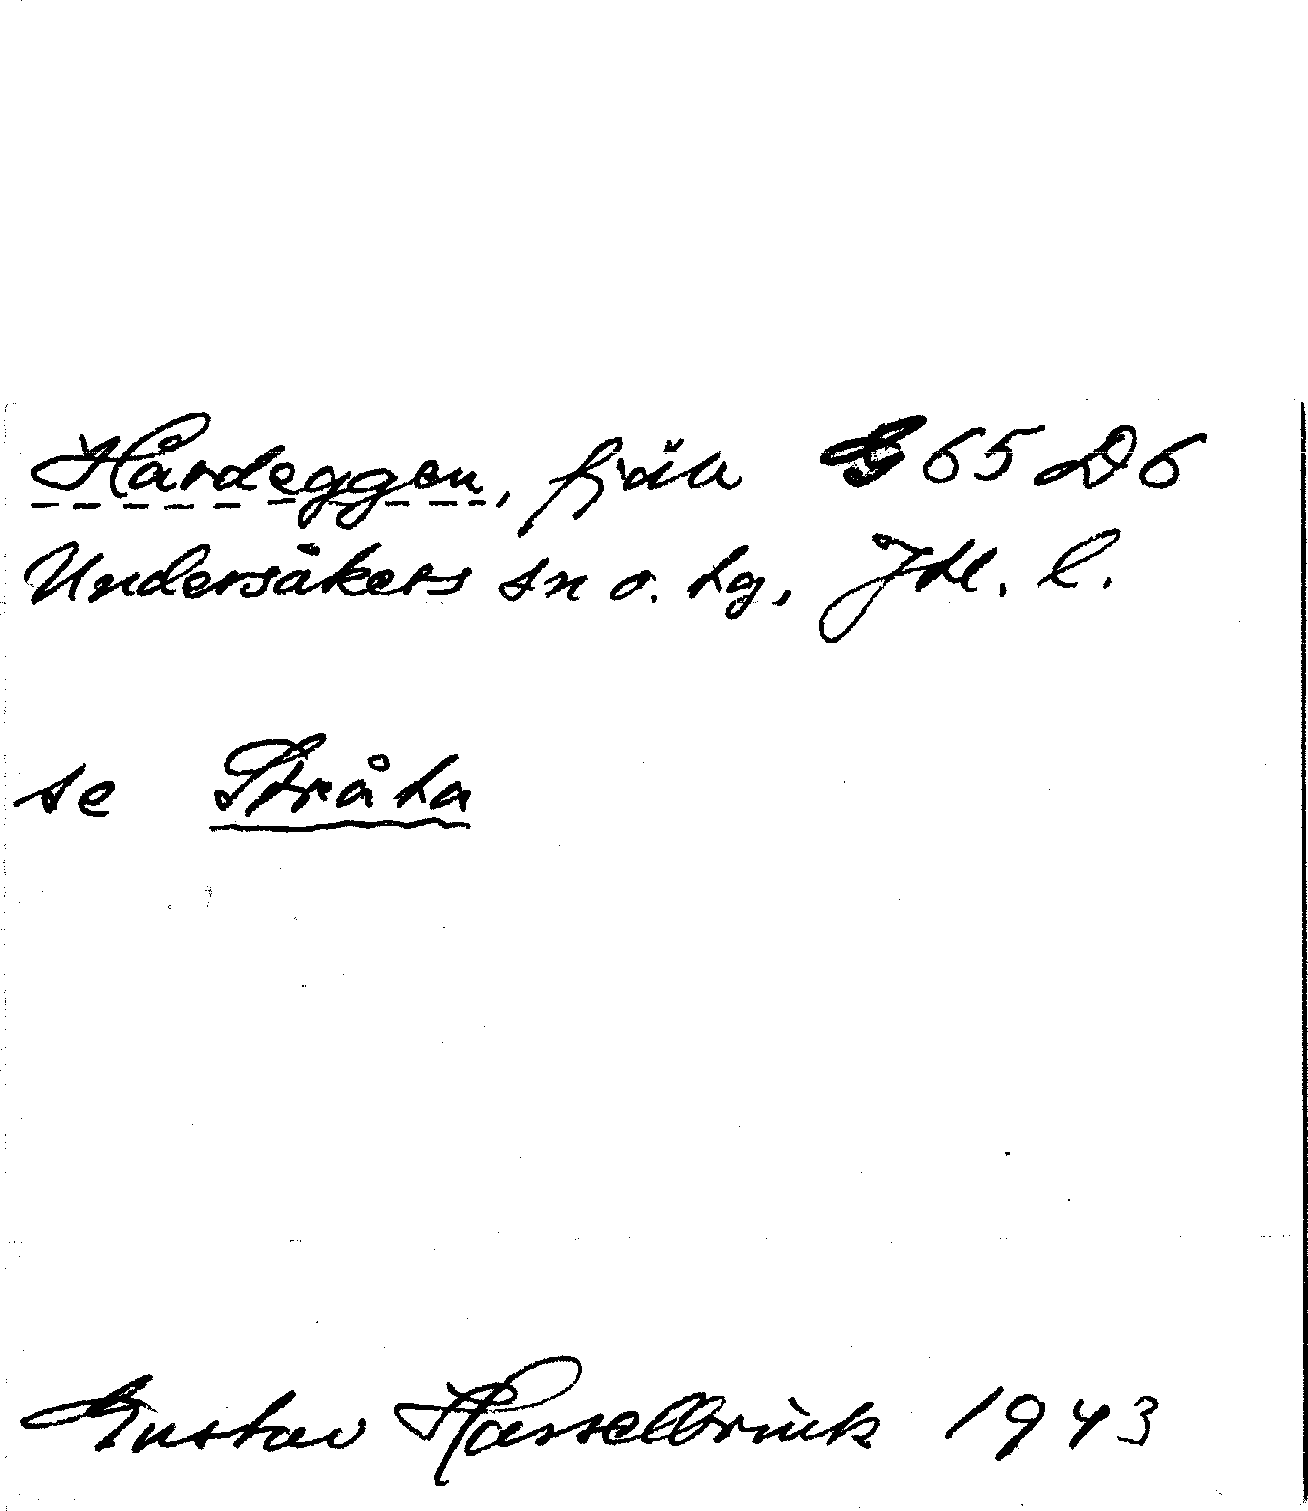 Hårdeggen, fjäll G 65 D 6
Undersåkers sn o. tg, Jtl. l.
se Stråta
Gustav Hasselbrink 1943